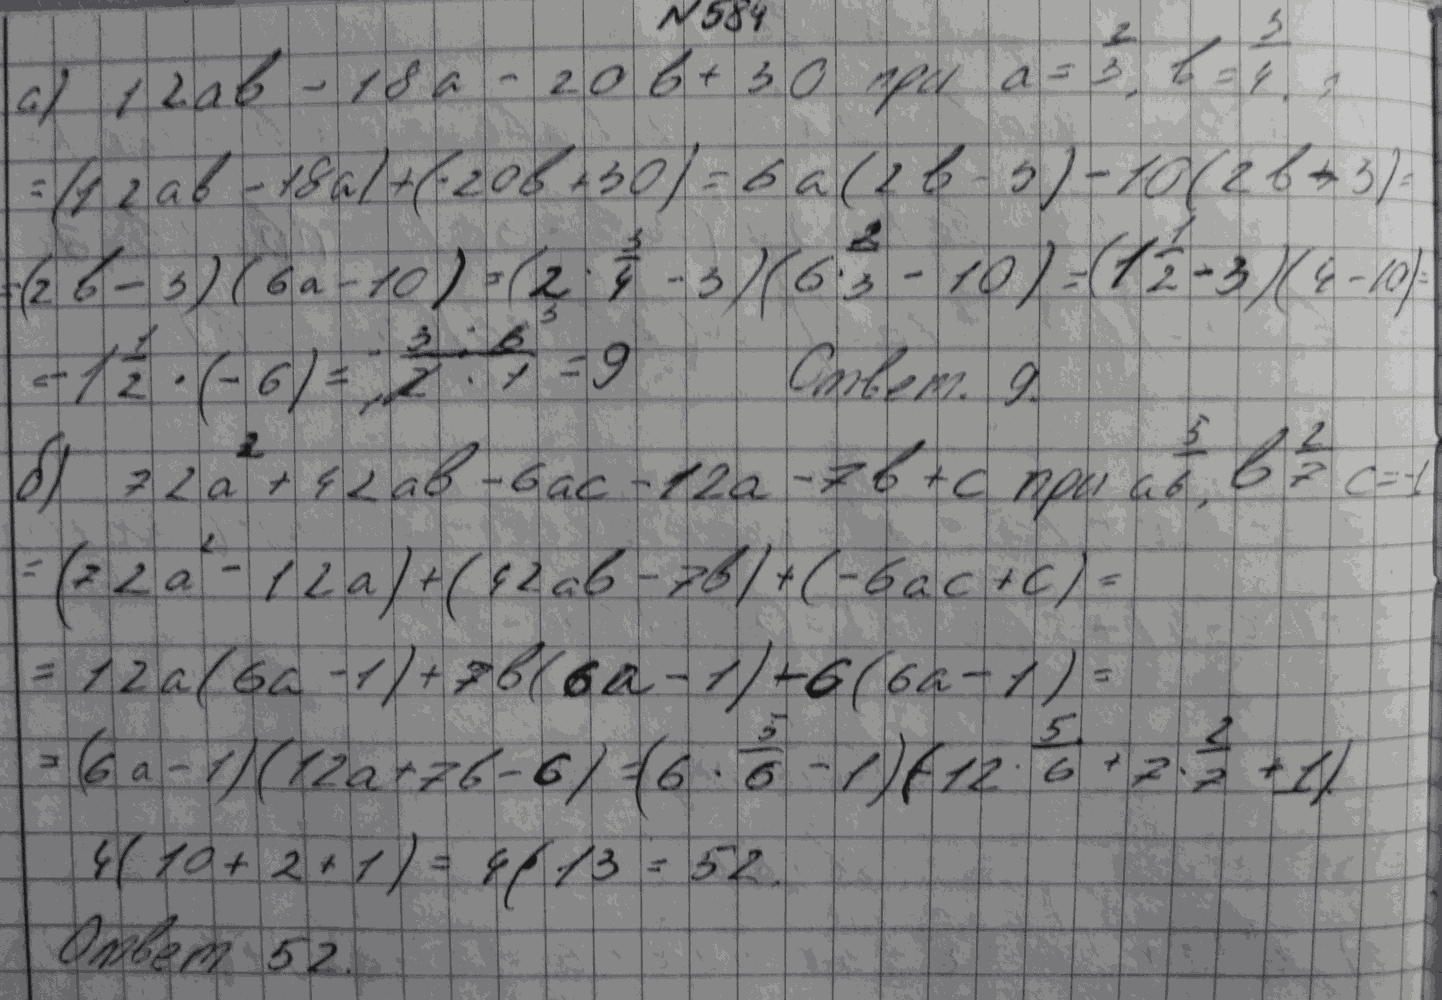 N584
а) 12ab - 18a - 20b + 30 при a = 2/3, b = 3/4.
= (12ab - 18a) + (-20b + 30) = 6a(2b - 3) - 10(2b - 3) =
= (2b - 3)(6a - 10) = (2 · 3/4 - 3)(6 · 2/3 - 10) = (1 1/2 - 3)(4 - 10) =
= -1 1/2 · (-6) = 3 · 6 / 2 · 1 = 9 Ответ. 9.
б) 72a² + 42ab - 6ac - 12a - 7b + c при a 5/6, b 2/7 c = -1
= (72a² - 12a) + (42ab - 7b) + (-6ac + c) =
= 12a(6a - 1) + 7b(6a - 1) - 6(6a - 1) =
= (6a - 1)(12a + 7b - 6) = (6 · 5/6 - 1)(12 · 5/6 + 7 · 2/7 + 1)
4(10 + 2 + 1) = 4 · 13 = 52.
Ответ 52.